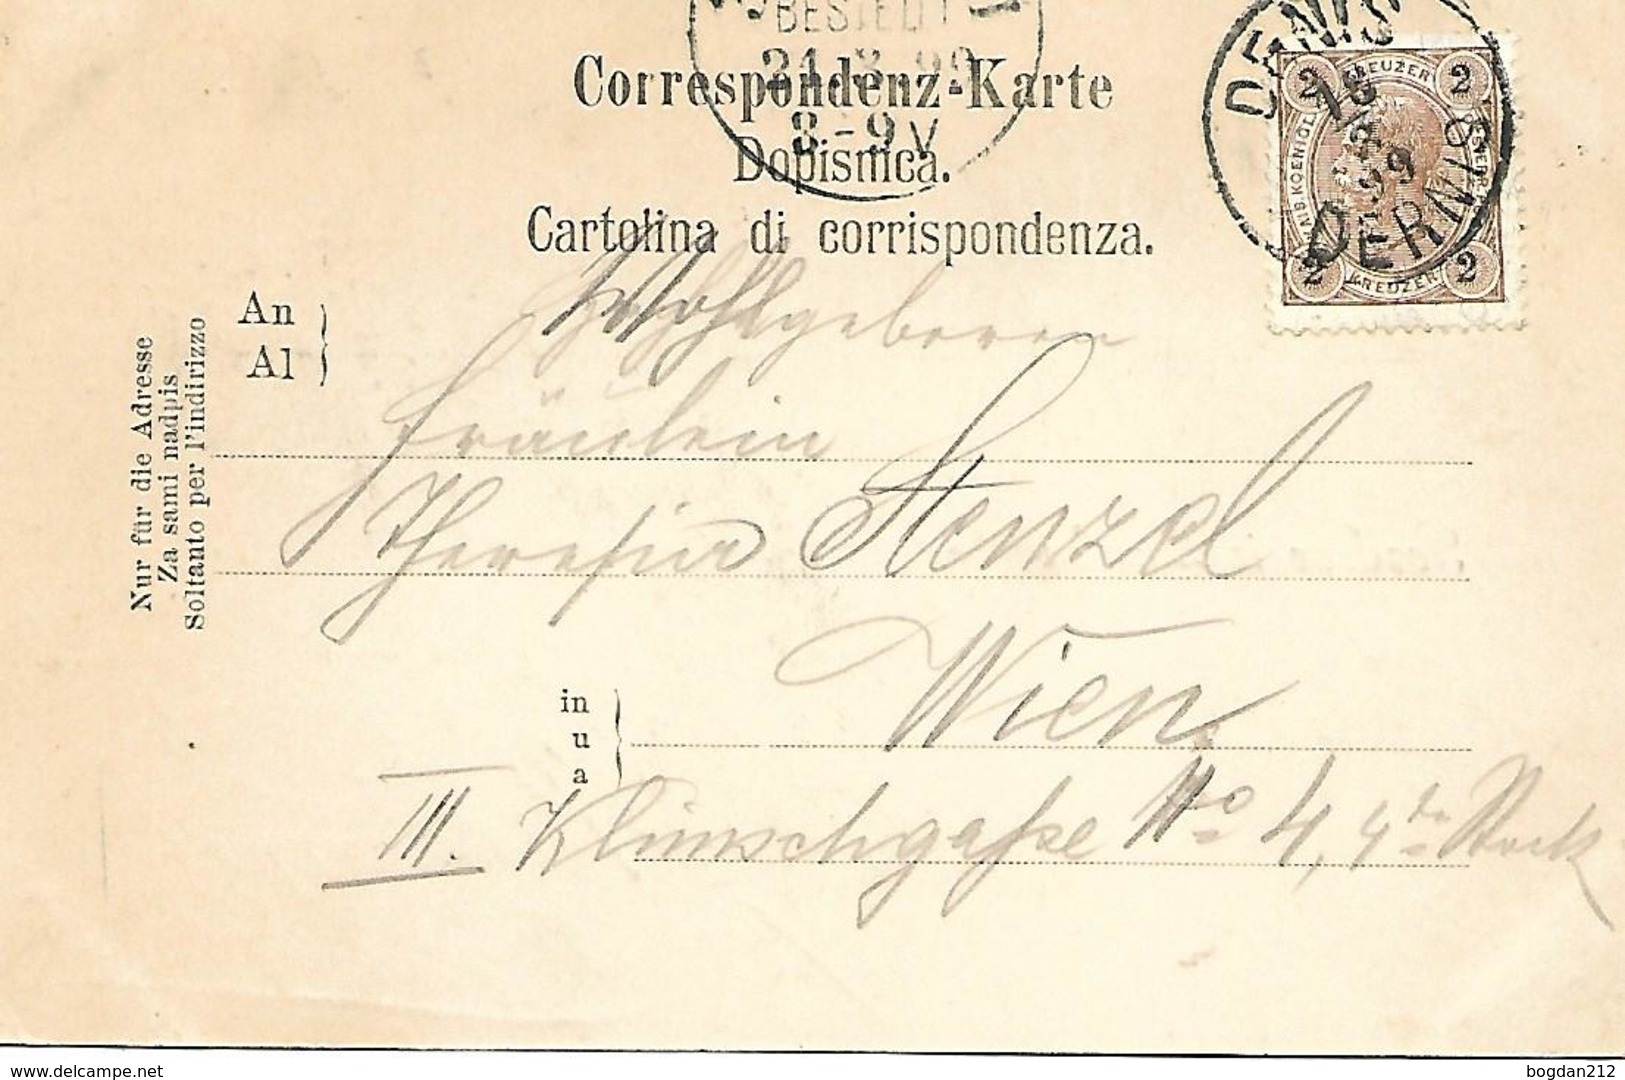 BESTELLT
21.8.99
8-9V
Correspondenz-Karte
Dopisnica.
Cartolina di corrispondenza.
DERNIS
DERNIS
99
2 KREUZER 2
2 KREUZER 2
An
Al
Nur für die Adresse
Za sami nadpis
Soltanto per l'indirizzo
Wohlgeboren
Fräulein
Theresia Stenzel
Wien
in
u
a
III. Klimschgasse No 4, 4ter Stock
delcampe.net
bogdan212